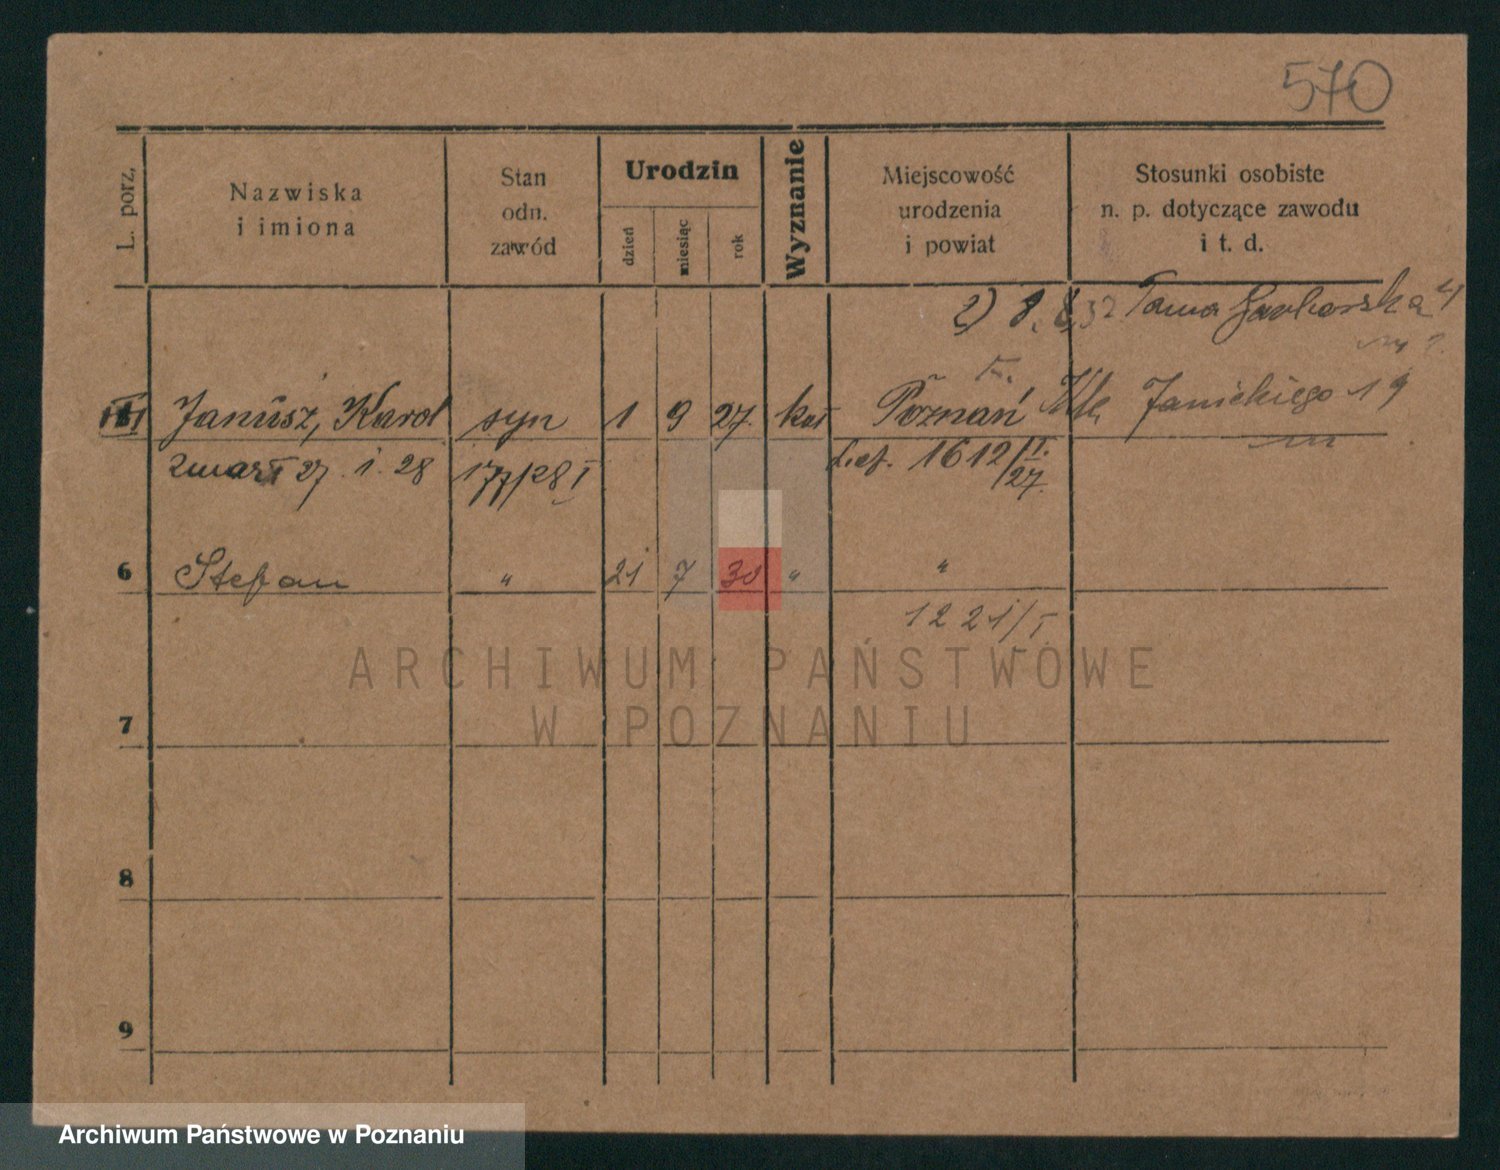 570
L. porz.
Nazwiska
i imiona
Stan
odn.
zawód
Urodzin
dzień
miesiąc
rok
Wyznanie
Miejscowość
urodzenia
i powiat
Stosunki osobiste
n. p. dotyczące zawodu
i t. d.
2) 8. 8. 32 Tama Garbarska 4
Janusz, Karol syn 1 9 27. kat Poznań Janickiego 19
zmarł 27. 1. 28 177/28 I 1612/II. /27.
6 Stefan " 21 7 30 " "
1221/I
ARCHIWUM PAŃSTWOWE
W POZNANIU
7
8
9
Archiwum Państwowe w Poznaniu